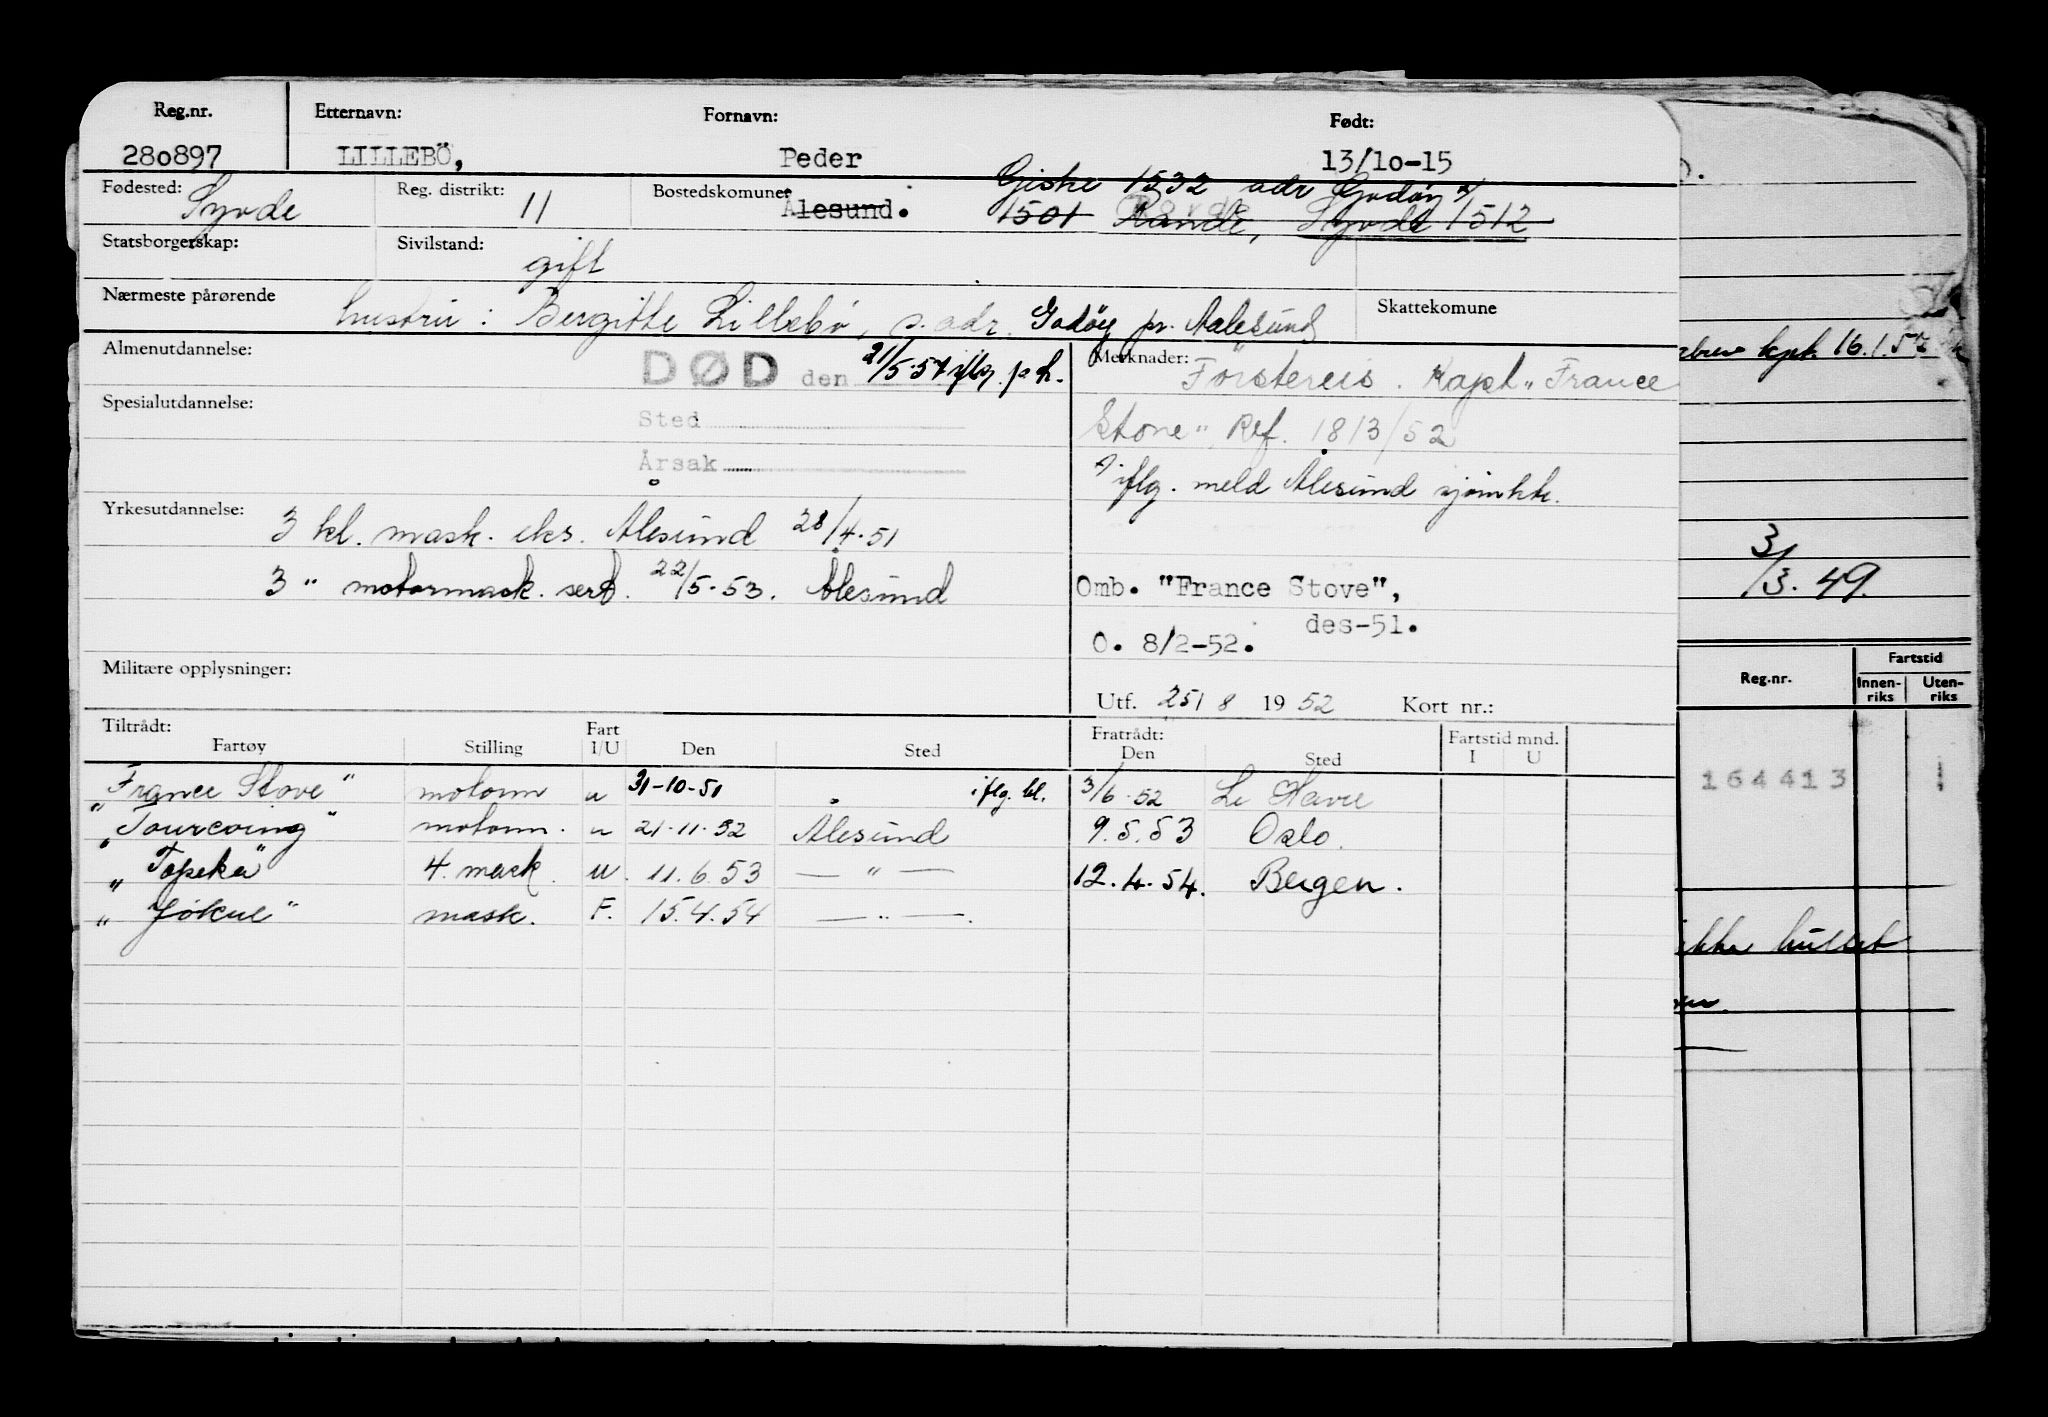 Reg.nr. Etternavn: Fornavn: Født:
280897 LILLEBÖ, Peder 13/10-15
Giske 1532 adr Godøy
Fødested: Syvde Reg. distrikt: 11 Bostedskomune: Ålesund. 1501 Rande, Syvde 1512
Statsborgerskap: Sivilstand: gift
Nærmeste pårørende hustru: Bergitte Lillebø, s. adr. Godøy pr. Aalesund Skattekomune
Almenutdannelse: DØD den 21/5.57 iflg. Merknader: Förstereis. Kapt „France
Spesialutdannelse: Sted Stone" Ref. 18/3/52
Årsak iflg. meld Ålesund
Yrkesutdannelse: 3 kl. mask. eks. Ålesund 28/4.51
3 " motormask. sert. 22/5.53. Ålesund
Omb. "France Stove",
des-51.
O. 8/2-52.
Militære opplysninger:
Utf. 25/8 1952 Kort nr.:
Tiltrådt: Fart Fratrådt: Fartstid mnd.
Fartøy Stilling I/U Den Sted Den Sted I U
„France Stove" motorm u 31-10-51 iflg. bl. 3/6.52 Le Havre
„Tourcoing" motorm. u 21.11.52 Ålesund 9.5.53 Oslo.
„Topeka" 4. mask. U. 11.6.53 — " — 12.4.54. Bergen.
„Jøkul" mask. F. 15.4.54 — " —.
kpt. 16.1.57
3/3.49.
Reg.nr. Fartstid
Innen-riks Uten-riks
164413 1
ikke